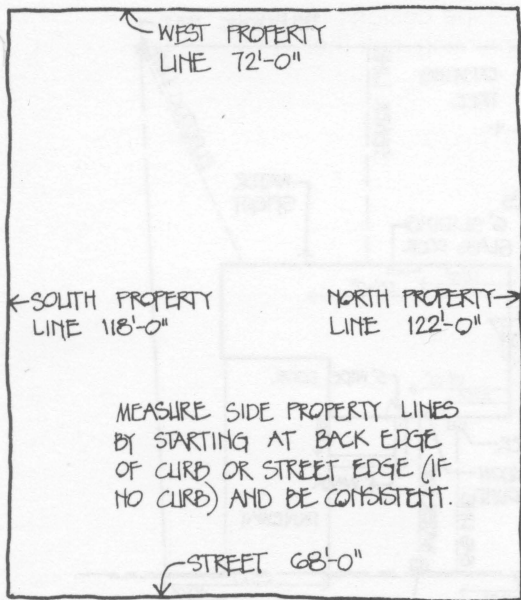 WEST PROPERTY
LINE 72'-0"
SOUTH PROPERTY
LINE 118'-0"
NORTH PROPERTY
LINE 122'-0"
MEASURE SIDE PROPERTY LINES
BY STARTING AT BACK EDGE
OF CURB OR STREET EDGE (IF
NO CURB) AND BE CONSISTENT.
STREET 68'-0"